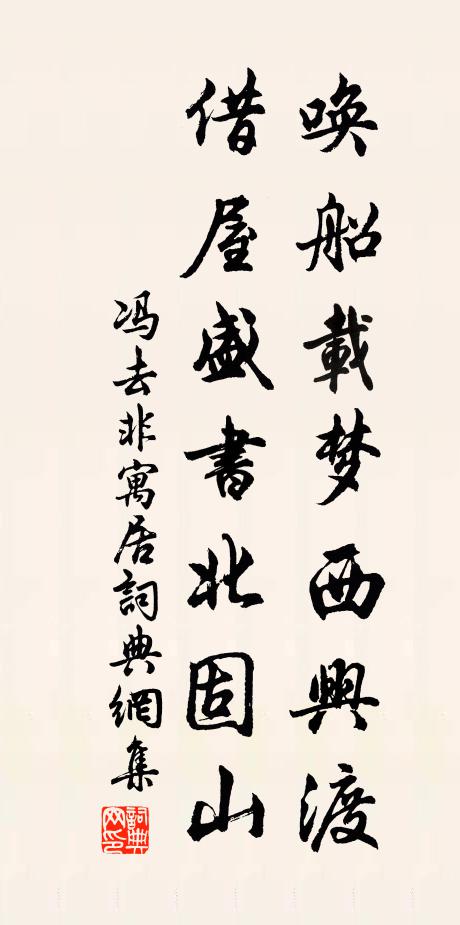 唤船載梦西興渡
借屋盛書北固山
冯去非寓居詞典網集
詞典网印